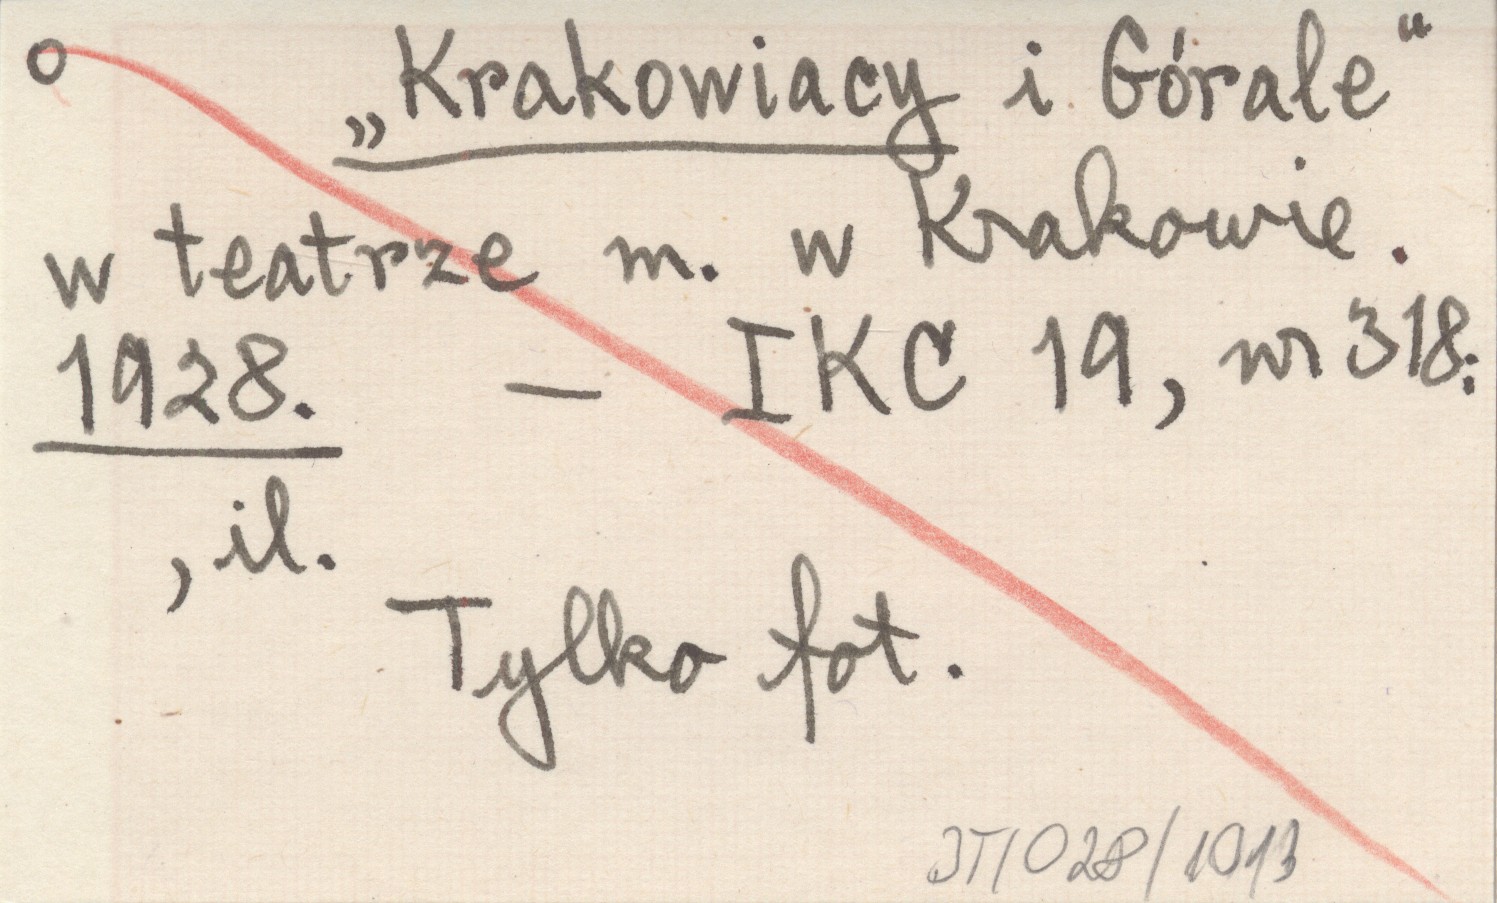 o „Krakowiacy i Górale“
w teatrze m. w Krakowie.
1928. — IKC 19, nr 318:
, il.
Tylko fot.
JT/028/1013